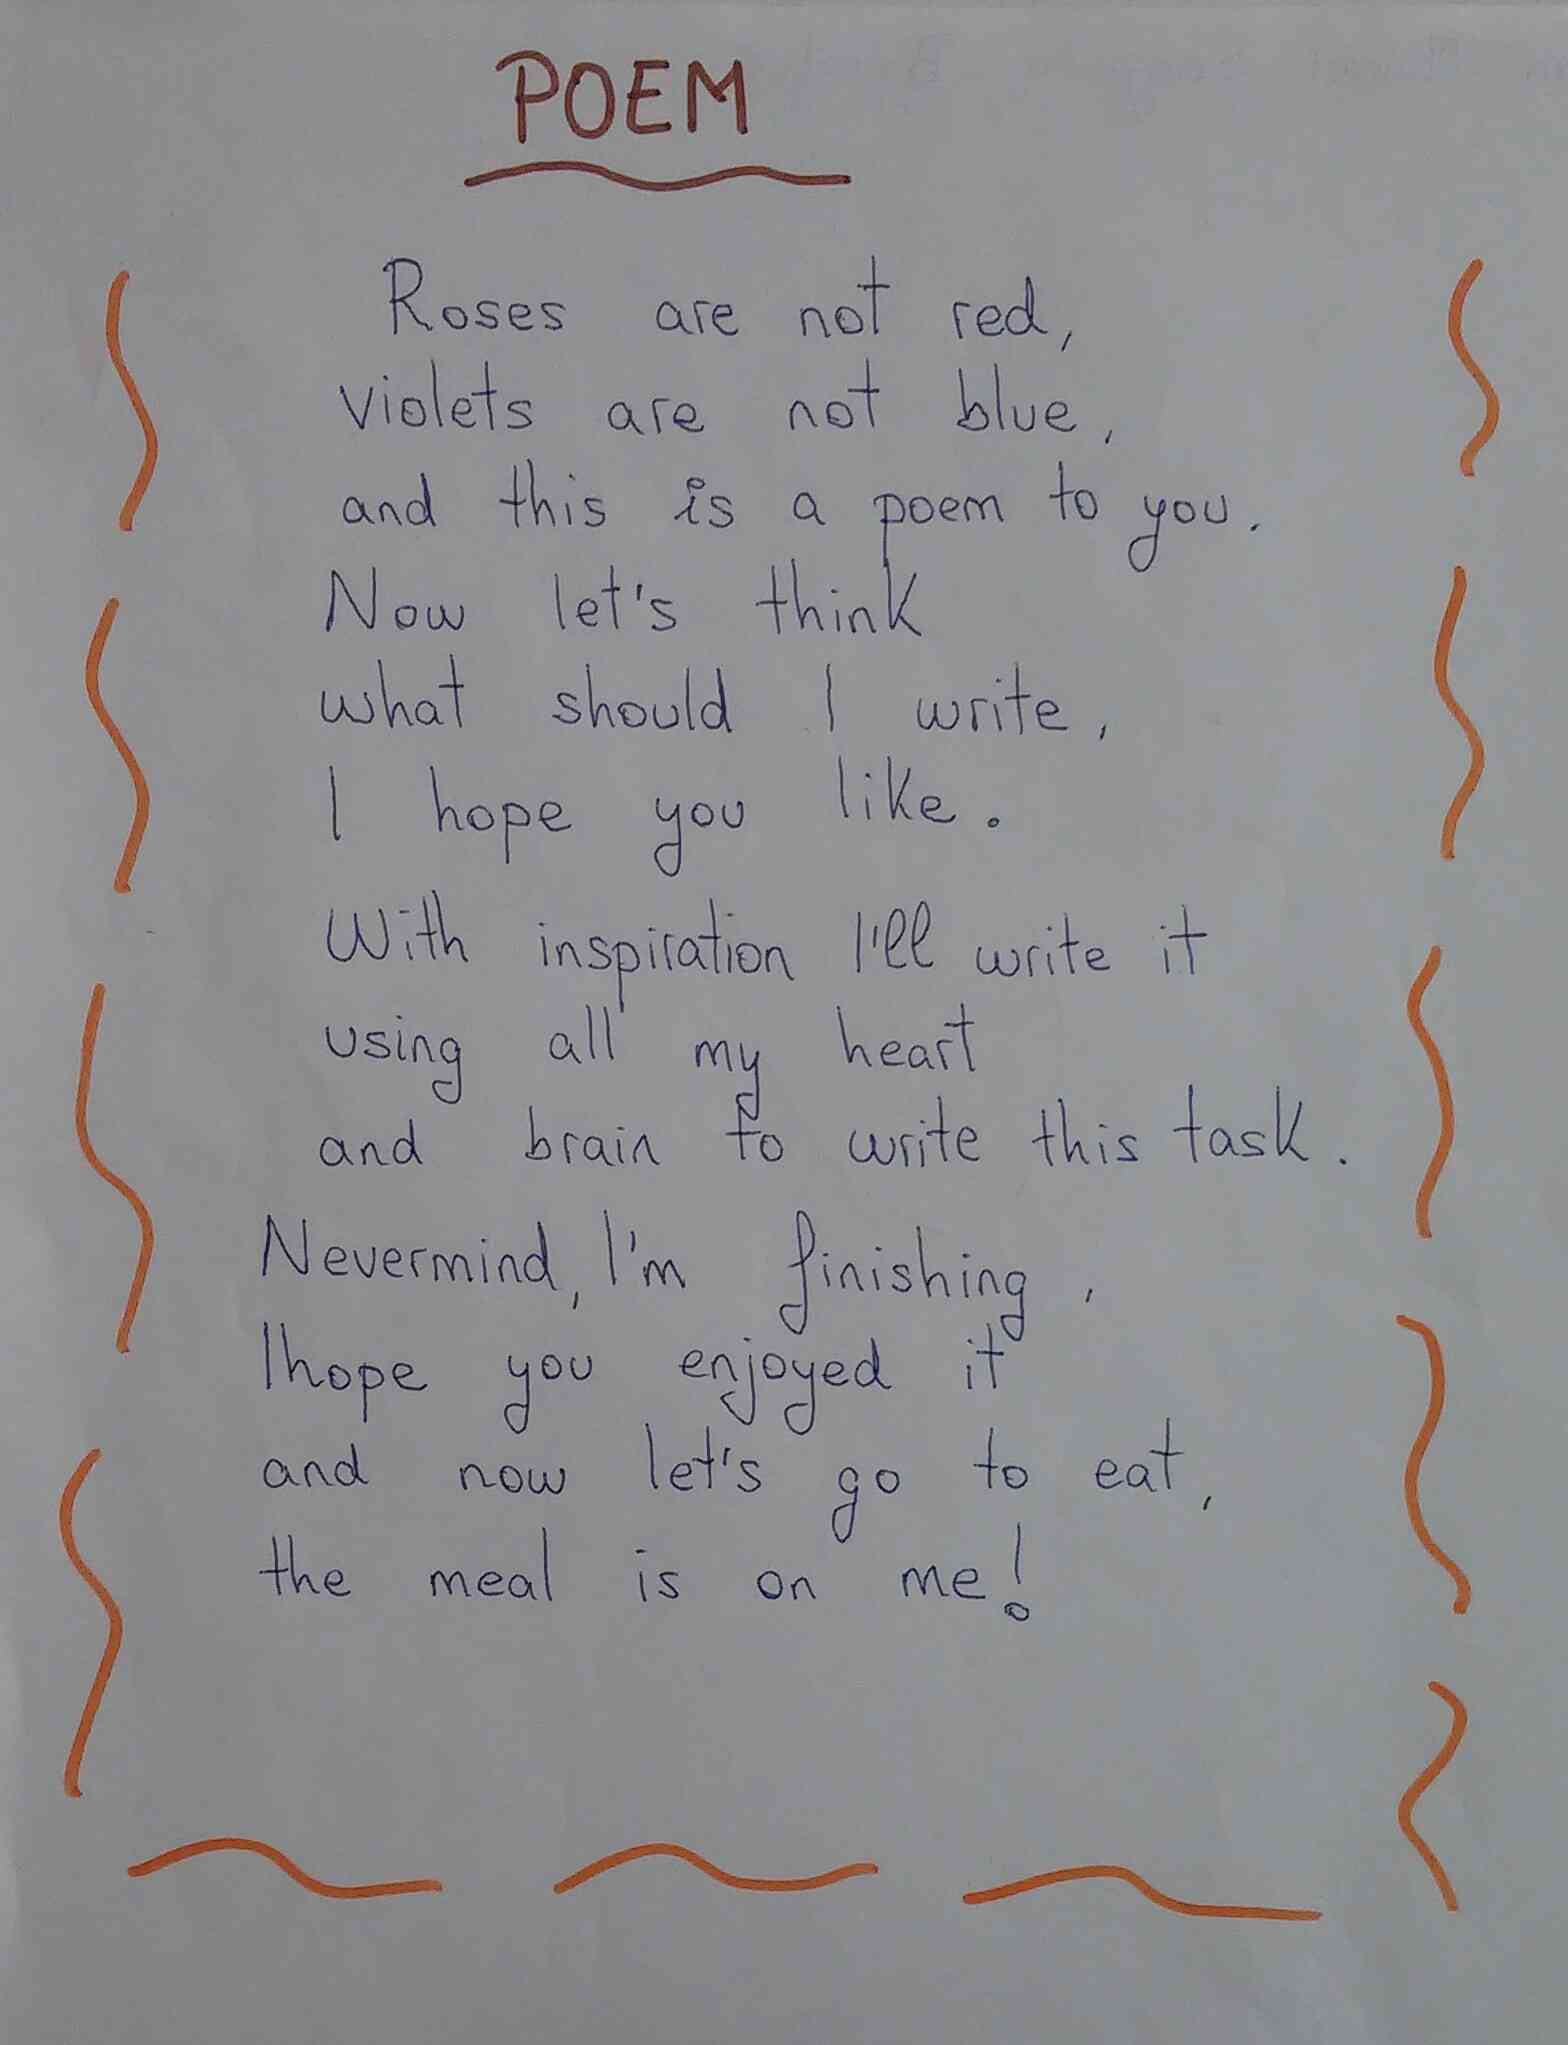 POEM
Roses are not red,
violets are not blue,
and this is a poem to you.
Now let's think
what should I write,
I hope you like.
With inspiration I'll write it
using all my heart
and brain to write this task.
Nevermind, I'm finishing,
I hope you enjoyed it
and now let's go to eat,
the meal is on me!